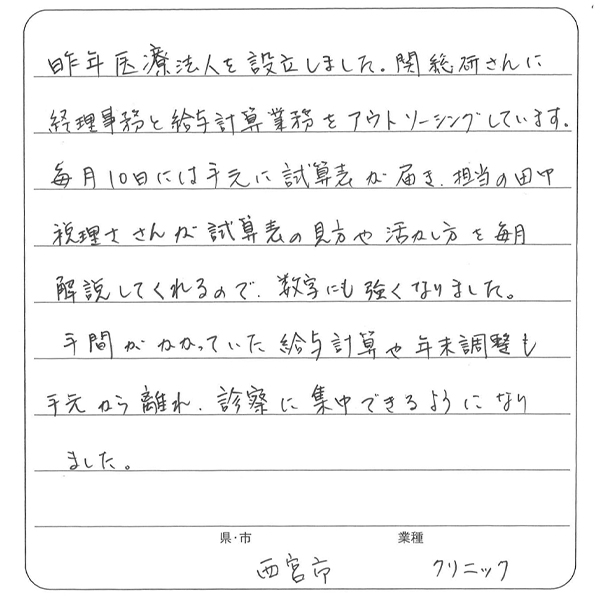 昨年医療法人を設立しました。関総研さんに
経理事務と給与計算業務をアウトソーシングしています。
毎月10日には手元に試算表が届き、担当の田中
税理士さんが試算表の見方や活かし方を毎月
解説してくれるので、数字にも強くなりました。
手間がかかっていた給与計算や年末調整も
手元から離れ、診察に集中できるようになり
ました。
県・市 業種
西宮市 クリニック